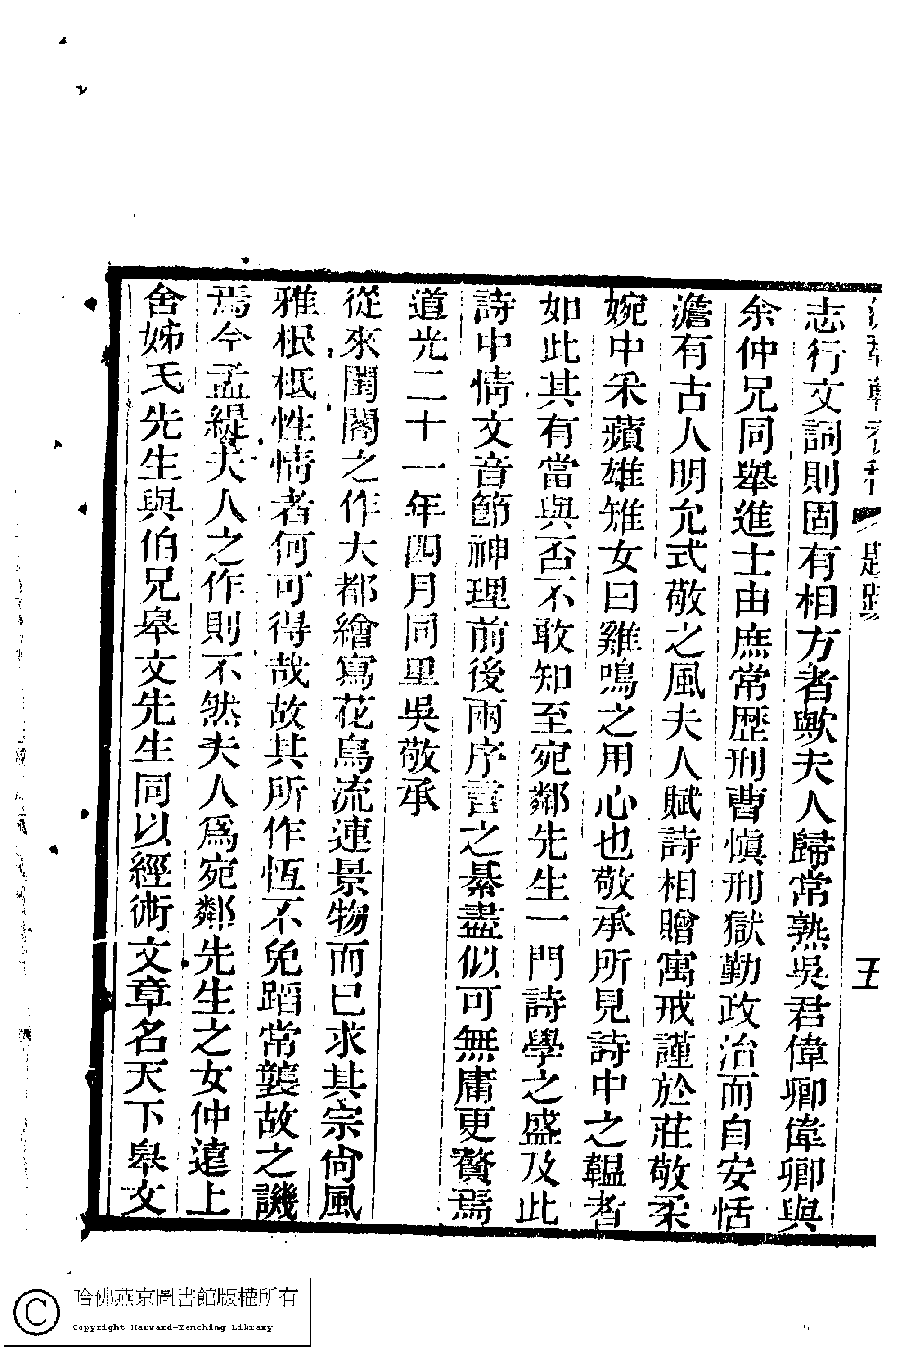 題跋
五
志行文詞則固有相方者歟夫人歸常熟吳君偉卿偉卿與
余仲兄同舉進士由庶常歷刑曹慎刑獄勤政治而自安恬
澹有古人明允式敬之風夫人賦詩相贈寓戒謹於莊敬柔
婉中釆蘋雄雉女曰雞鳴之用心也敬承所見詩中之韞者
如此其有當與否不敢知至宛鄰先生一門詩學之盛及此
詩中情文音節神理前後兩序言之綦盡似可無庸更贅焉
道光二十一年四月同里吳敬承
從來閨閤之作大都繪寫花鳥流連景物而已求其宗尙風
雅根柢性情者何可得哉故其所作恆不免蹈常襲故之譏
焉今孟緹夫人之作則不然夫人爲宛鄰先生之女仲遠上
舍姊氏先生與伯兄皋文先生同以經術文章名天下皋文
哈佛燕京圖書館版權所有
Copyright Harvard-Yenching Library